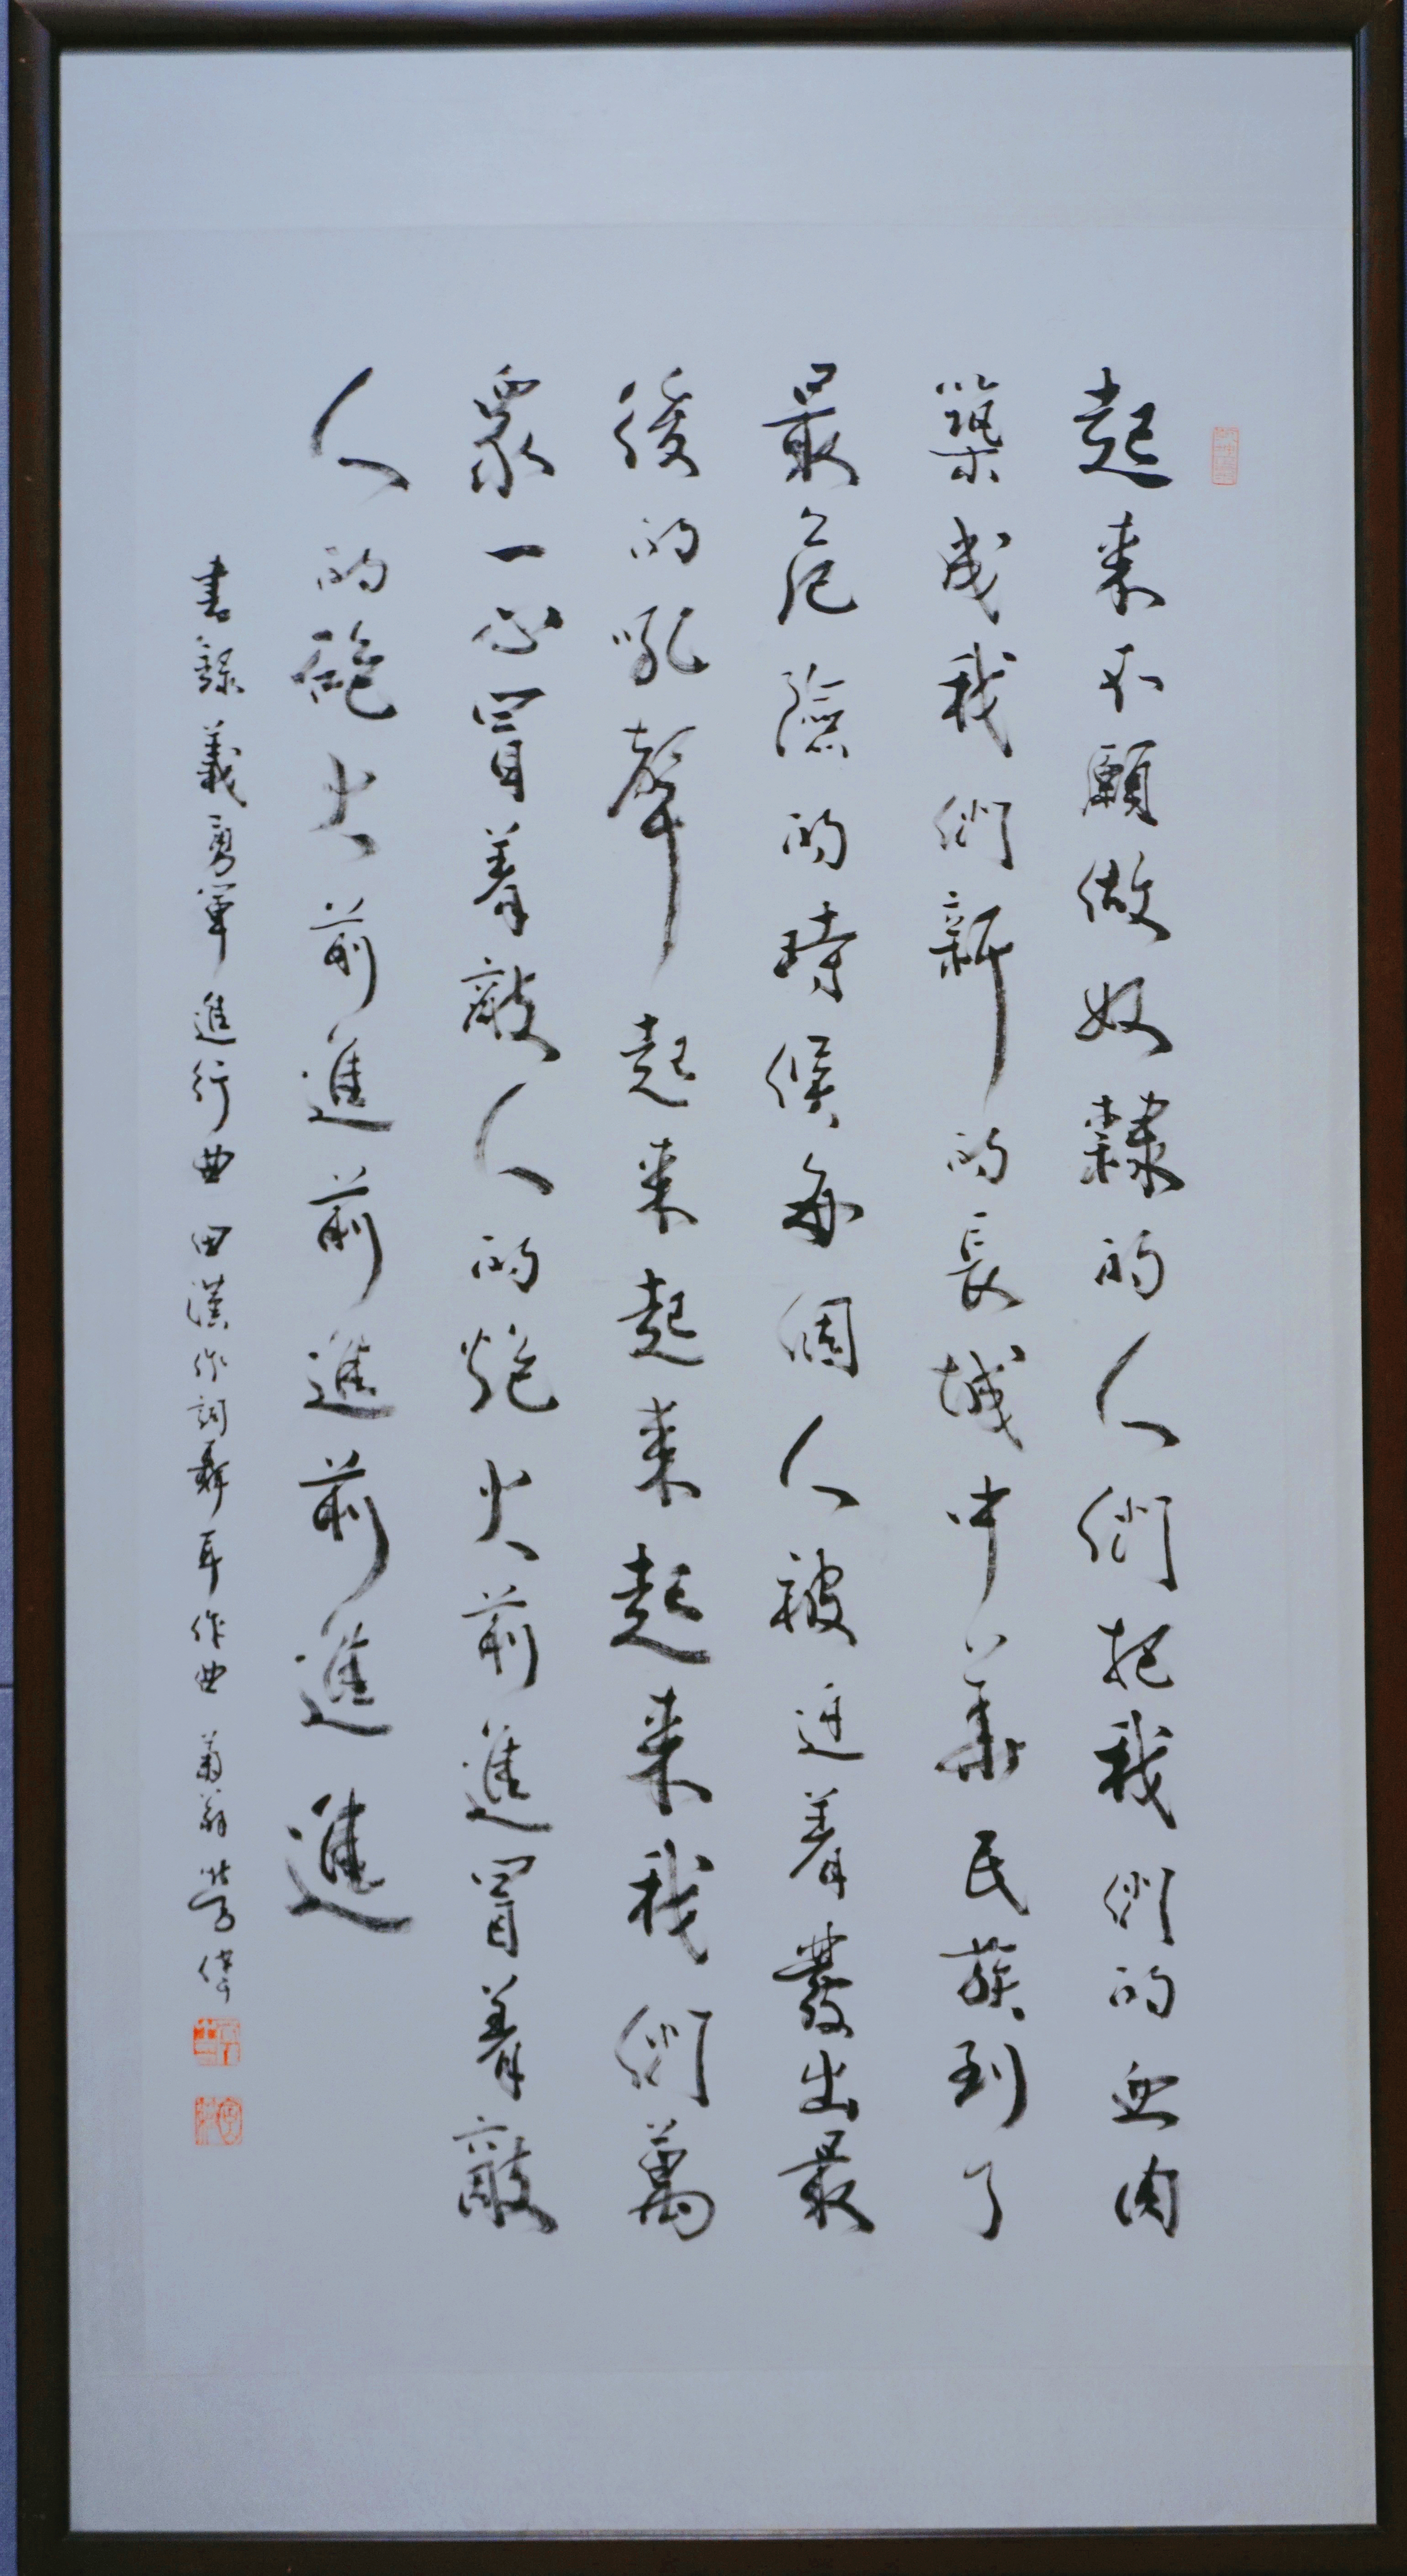 起来不願做奴隸的人們把我們的血肉
築成我們新的長城中華民族到了
最危險的時候每個人被迫着發出最
後的吼聲起来起来起来我們萬
衆一心冒着敵人的炮火前進冒着敵
人的砲火前進前進前進進
書錄義勇軍進行曲田漢作詞聶耳作曲